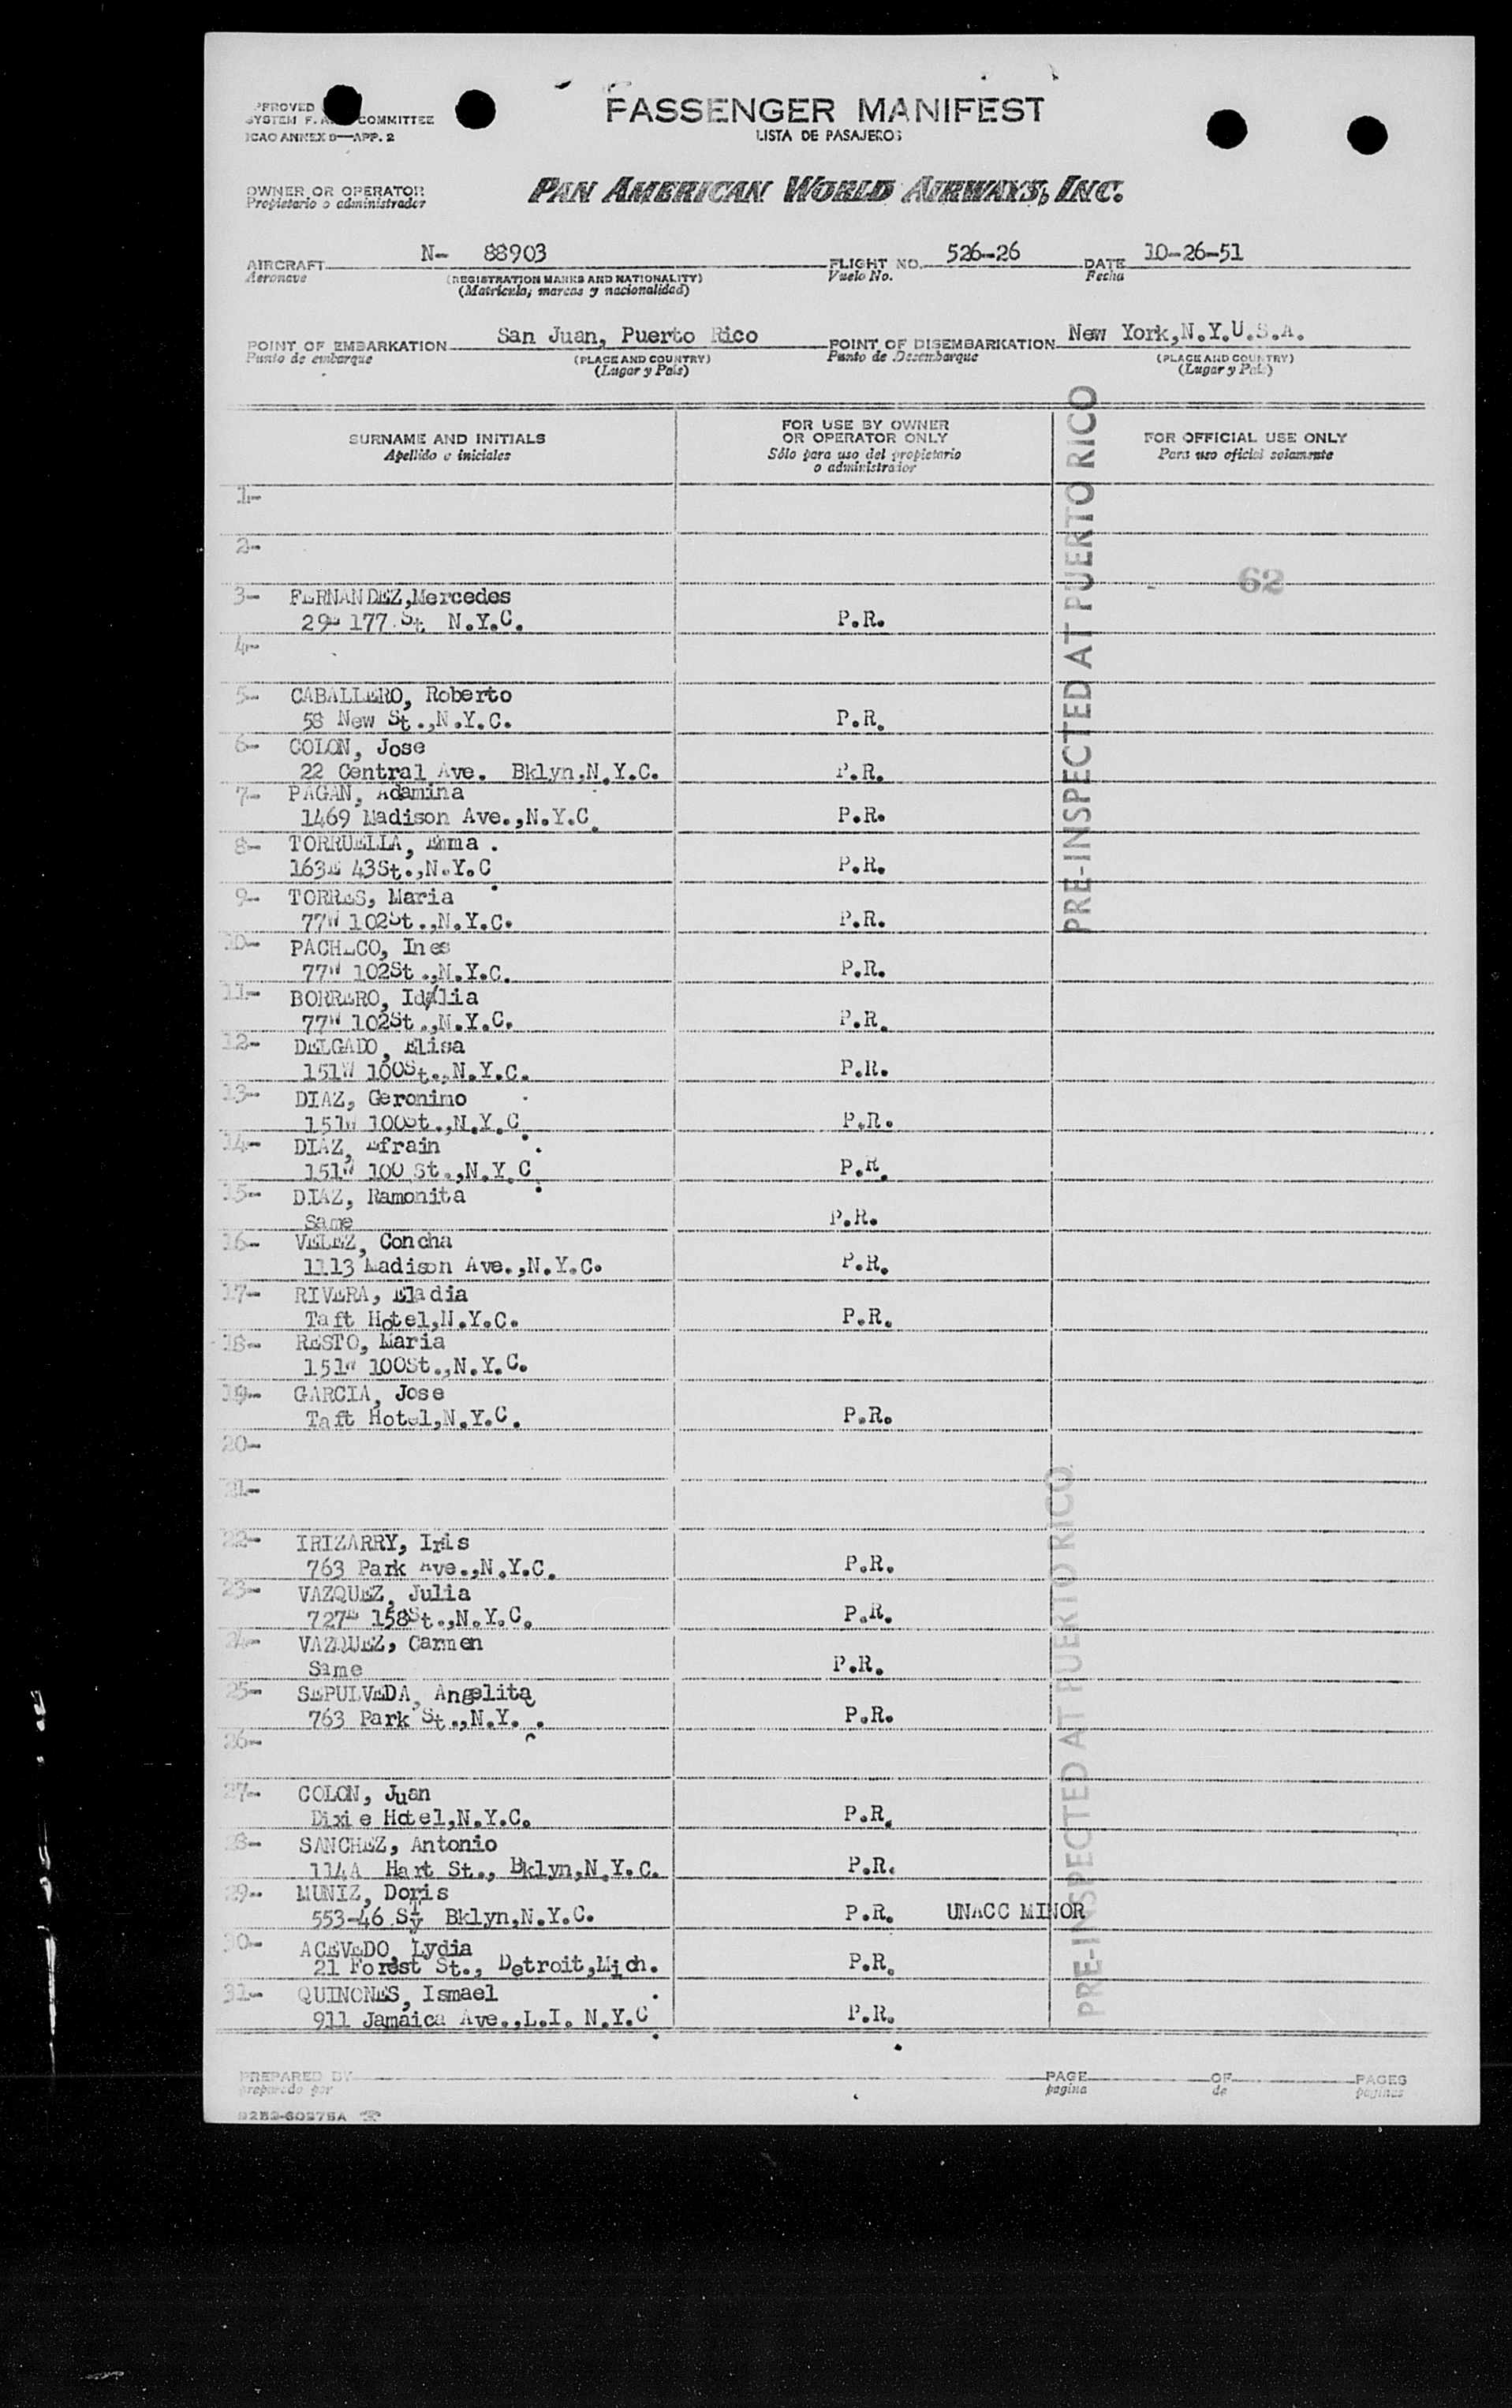 APPROVED
SYSTEM F.A. COMMITTEE
ICAO ANNEX 9—APP. 2
PASSENGER MANIFEST
LISTA DE PASAJEROS
OWNER OR OPERATOR
Propietario o administrador
PAN AMERICAN WORLD AIRWAYS, INC.
AIRCRAFT N- 88903 FLIGHT NO. 526-26 DATE 10-26-51
Aeronave (REGISTRATION MARKS AND NATIONALITY) Vuelo No. Fecha
(Matricula, marcas y nacionalidad)
POINT OF EMBARKATION San Juan, Puerto Rico POINT OF DISEMBARKATION New York,N.Y.U.S.A.
Punto de embarque (PLACE AND COUNTRY) Punto de Desembarque (PLACE AND COUNTRY)
(Lugar y País) (Lugar y País)
SURNAME AND INITIALS FOR USE BY OWNER OR OPERATOR ONLY FOR OFFICIAL USE ONLY
Apellido e iniciales Sólo para uso del propietario o administrador Para uso oficial solamente
PRE-INSPECTED AT PUERTO RICO
1-
2-
62
3- FERNANDEZ,Mercedes
29E 177 St N.Y.C. P.R.
4-
5- CABALLERO, Roberto
58 New St.,N.Y.C. P.R.
6- COLON, Jose
22 Central Ave. Bklyn,N.Y.C. P.R.
7- PAGAN, Adamina
1469 Madison Ave.,N.Y.C. P.R.
8- TORRUELLA, Emma
163E 43St.,N.Y.C. P.R.
9- TORRES, Maria
77W 102St.,N.Y.C. P.R.
10- PACHECO, Ines
77W 102St.,N.Y.C. P.R.
11- BORRERO, Idalia
77W 102St.,N.Y.C. P.R.
12- DELGADO, Elisa
151W 100St.,N.Y.C. P.R.
13- DIAZ, Geronimo
151W 100St.,N.Y.C. P.R.
14- DIAZ, Efrain
151W 100 St.,N.Y.C. P.R.
15- DIAZ, Ramonita
Same P.R.
16- VELEZ, Concha
1113 Madison Ave.,N.Y.C. P.R.
17- RIVERA, Eladia
Taft Hotel,N.Y.C. P.R.
18- RESTO, Maria
151W 100St.,N.Y.C.
19- GARCIA, Jose
Taft Hotel,N.Y.C. P.R.
20-
21-
22- IRIZARRY, Iris
763 Park Ave.,N.Y.C. P.R.
23- VAZQUEZ, Julia
727E 158St.,N.Y.C. P.R.
24- VAZQUEZ, Carmen
Same P.R.
25- SEPULVEDA, Angelita
763 Park St.,N.Y.C. P.R.
26-
27- COLON, Juan
Dixie Hotel,N.Y.C. P.R.
28- SANCHEZ, Antonio
114A Hart St., Bklyn,N.Y.C. P.R.
29- MUNIZ, Doris
553-46 St Bklyn,N.Y.C. P.R. UNACC MINOR
30- ACEVEDO, Lydia
21 Forest St., Detroit,Mich. P.R.
31- QUINONES, Ismael
911 Jamaica Ave.,L.I. N.Y.C. P.R.
PRE-INSPECTED AT PUERTO RICO
PREPARED BY PAGE OF PAGES
preparado por pagina de paginas